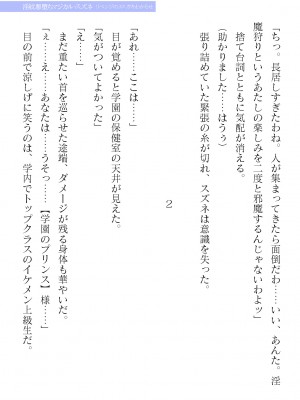 「ちっ。長居しすぎたわね。人が集まってきたら面倒だわ……いい、あんた。淫
魔狩りというあたしの楽しみを二度と邪魔するんじゃないわよッ」
捨て台詞とともに気配が消える。
（助かりました……はうぅ）
張り詰めていた緊張の糸が切れ、スズネは意識を失った。
2
「あれ……ここは……」
目が覚めると学園の保健室の天井が見えた。
「気がついてよかった」
まだ重たい首を巡らせた途端、ダメージが残る身体も華やいだ。
「ぇ……え……あなたは……うそっ……【学園のプリンス】様……」
目の前で涼しげに笑うのは、学内でトップクラスのイケメン上級生だ。